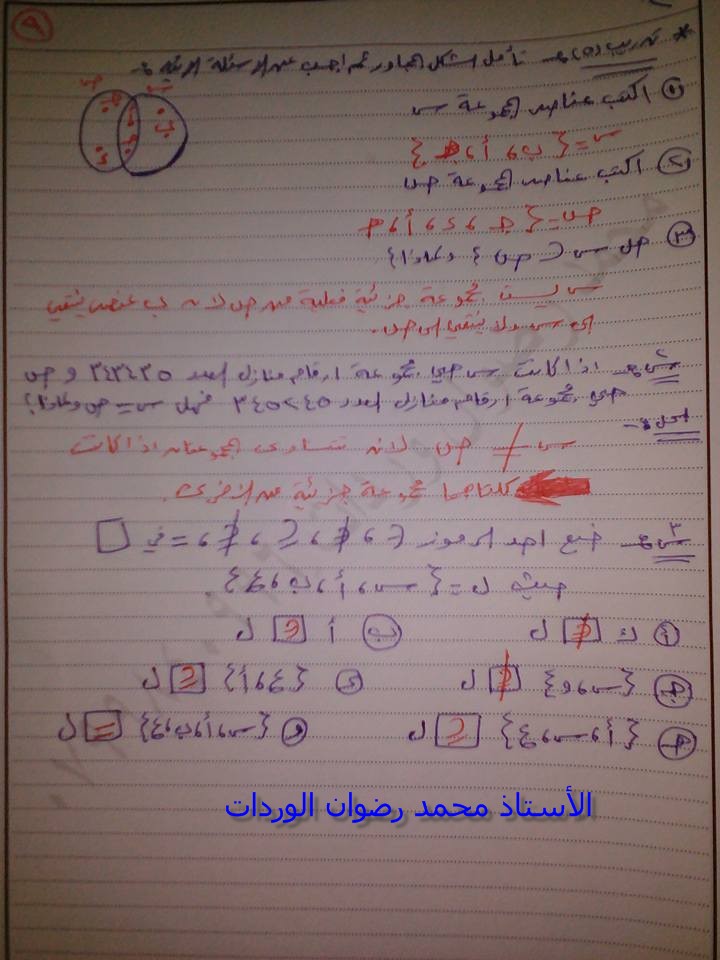 ٩
* تدريب (٥) :- تأمل الشكل المجاور ثم اجب عن الاسئلة الاتية :-
١ اكتب عناصر المجموعة س
س = { ب ، أ ، هـ }
٢ اكتب عناصر المجموعة ص
ص = { جـ ، د ، أ ، هـ
٣ هل س ⊂ ص ؟ ولماذا؟
س ليست مجموعة جزئية فعلية من ص لانه ب عنصر ينتمي
الى س ولا ينتمي الى ص.
س :- اذا كانت س هي مجموعة ارقام منازل العدد ٣٤٣٤٢٥ و ص
هي مجموعة ارقام منازل العدد ٣٤٥٢٤٥ فهل س = ص ولماذا؟
الحل :-
س ≠ ص لانه تتساوى المجموعتان اذا كانت
كلتاهما مجموعة جزئية من الاخرى.
س٣ :- ضع احد الرموز ∈ ، ∉ ، ⊂ ، ⊄ ، = في □
حيث ل = { س ، أ ، ب ، ع }.
أ ك ∉ ل ب أ ∈ ل
جـ { س ، و } ⊄ ل د { ع ، أ } ⊂ ل
هـ { أ ، س ، ع } ⊂ ل و { س ، أ ، ب ، ع } = ل
الأستاذ محمد رضوان الوردات